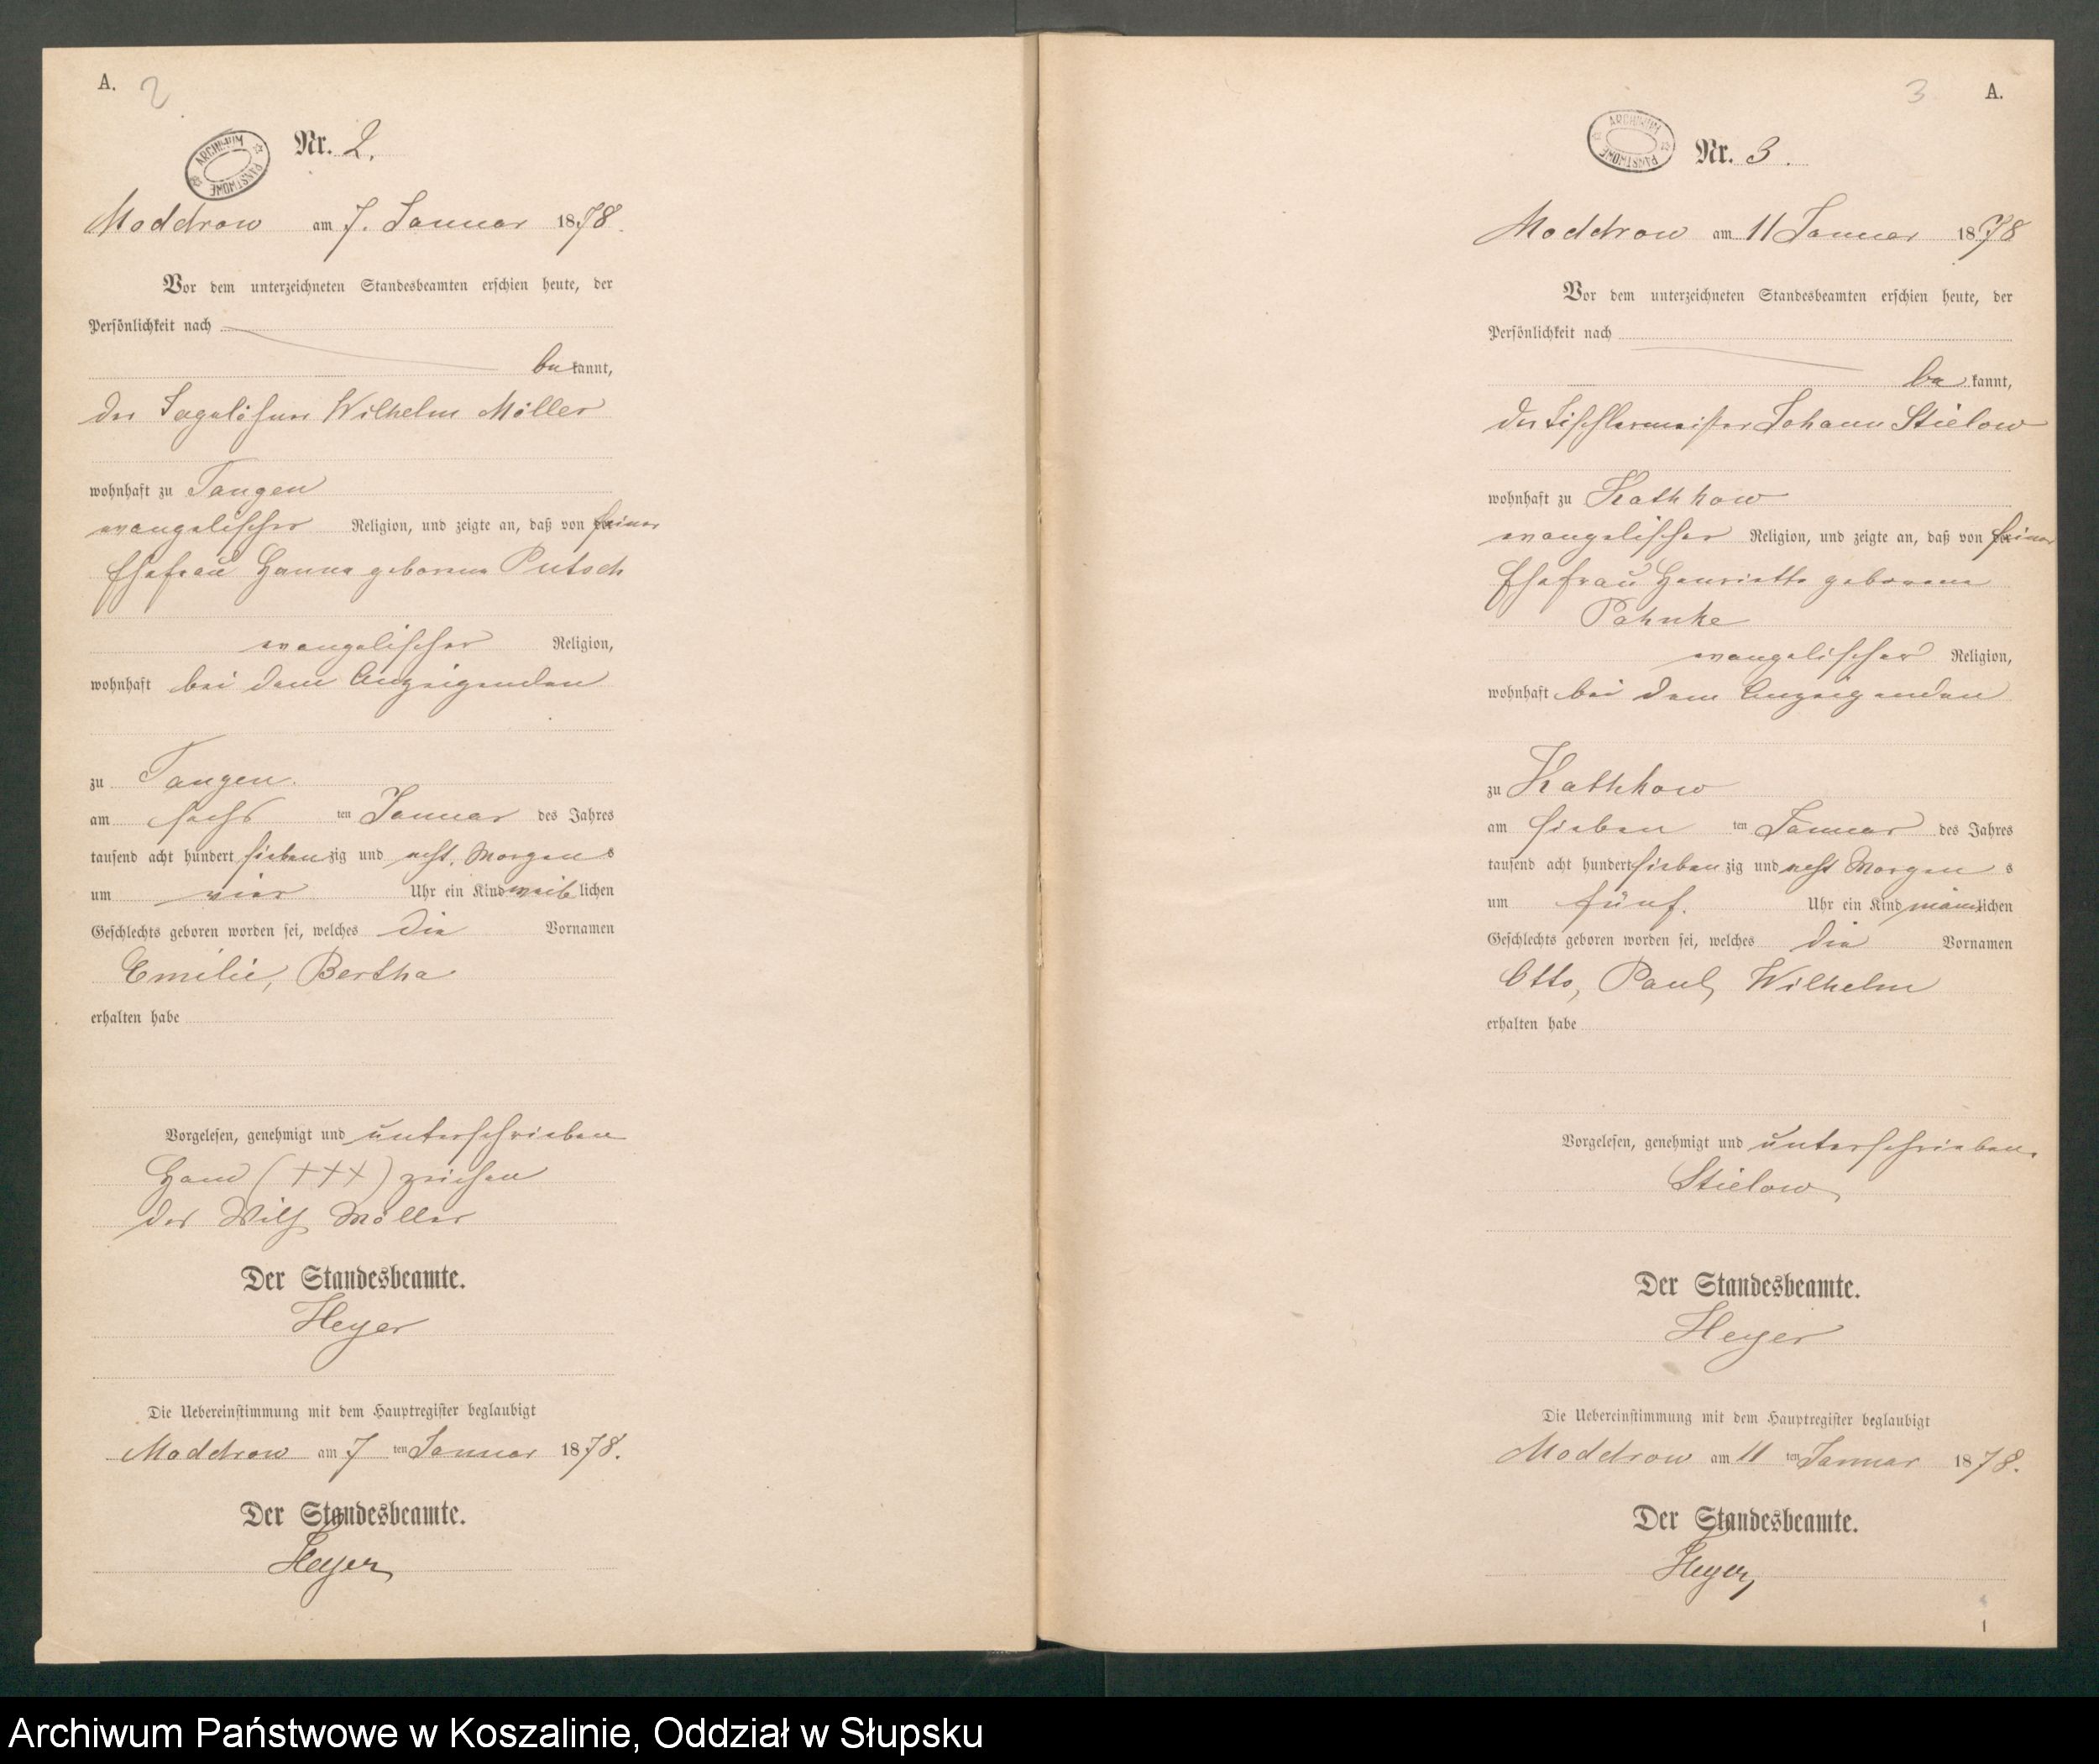 A. 2
ARCHIWUM PAŃSTWOWE
Nr. 2.
Moddrow am 7. Januar 1878.
Vor dem unterzeichneten Standesbeamten erschien heute, der
Persönlichkeit nach
bekannt,
der Tagelöhner Wilhelm Möller
wohnhaft zu Tangen
evangelischer Religion, und zeigte an, daß von seiner
Ehefrau Hanna geborene Putsch
evangelischer Religion,
wohnhaft bei dem Anzeigenden
zu Tangen.
am sechsten Januar des Jahres
tausend acht hundert siebenzig und acht, Morgens
um vier Uhr ein Kind weiblichen
Geschlechts geboren worden sei, welches die Vornamen
Emilie, Bertha
erhalten habe
Vorgelesen, genehmigt und unterschrieben
Hand (+++) zeichen
des Wilh Möller
Der Standesbeamte.
Heyer
Die Uebereinstimmung mit dem Hauptregister beglaubigt
Moddrow am 7 ten Januar 1878.
Der Standesbeamte.
Heyer
3 A.
ARCHIWUM PAŃSTWOWE
Nr. 3.
Moddrow am 11 Januar 1878
Vor dem unterzeichneten Standesbeamten erschien heute, der
Persönlichkeit nach
bekannt,
der Tischlermeister Johann Stielow
wohnhaft zu Kathkow
evangelischer Religion, und zeigte an, daß von seiner
Ehefrau Henriette geborene
Pahnke
evangelischer Religion,
wohnhaft bei dem Anzeigenden
zu Kathkow
am siebenten Januar des Jahres
tausend acht hundert siebenzig und acht Morgens
um fünf. Uhr ein Kind männlichen
Geschlechts geboren worden sei, welches die Vornamen
Otto, Paul, Wilhelm
erhalten habe
Vorgelesen, genehmigt und unterschrieben.
Stielow
Der Standesbeamte.
Heyer
Die Uebereinstimmung mit dem Hauptregister beglaubigt
Moddrow am 11 ten Januar 1878.
Der Standesbeamte.
Heyer
1
Archiwum Państwowe w Koszalinie, Oddział w Słupsku